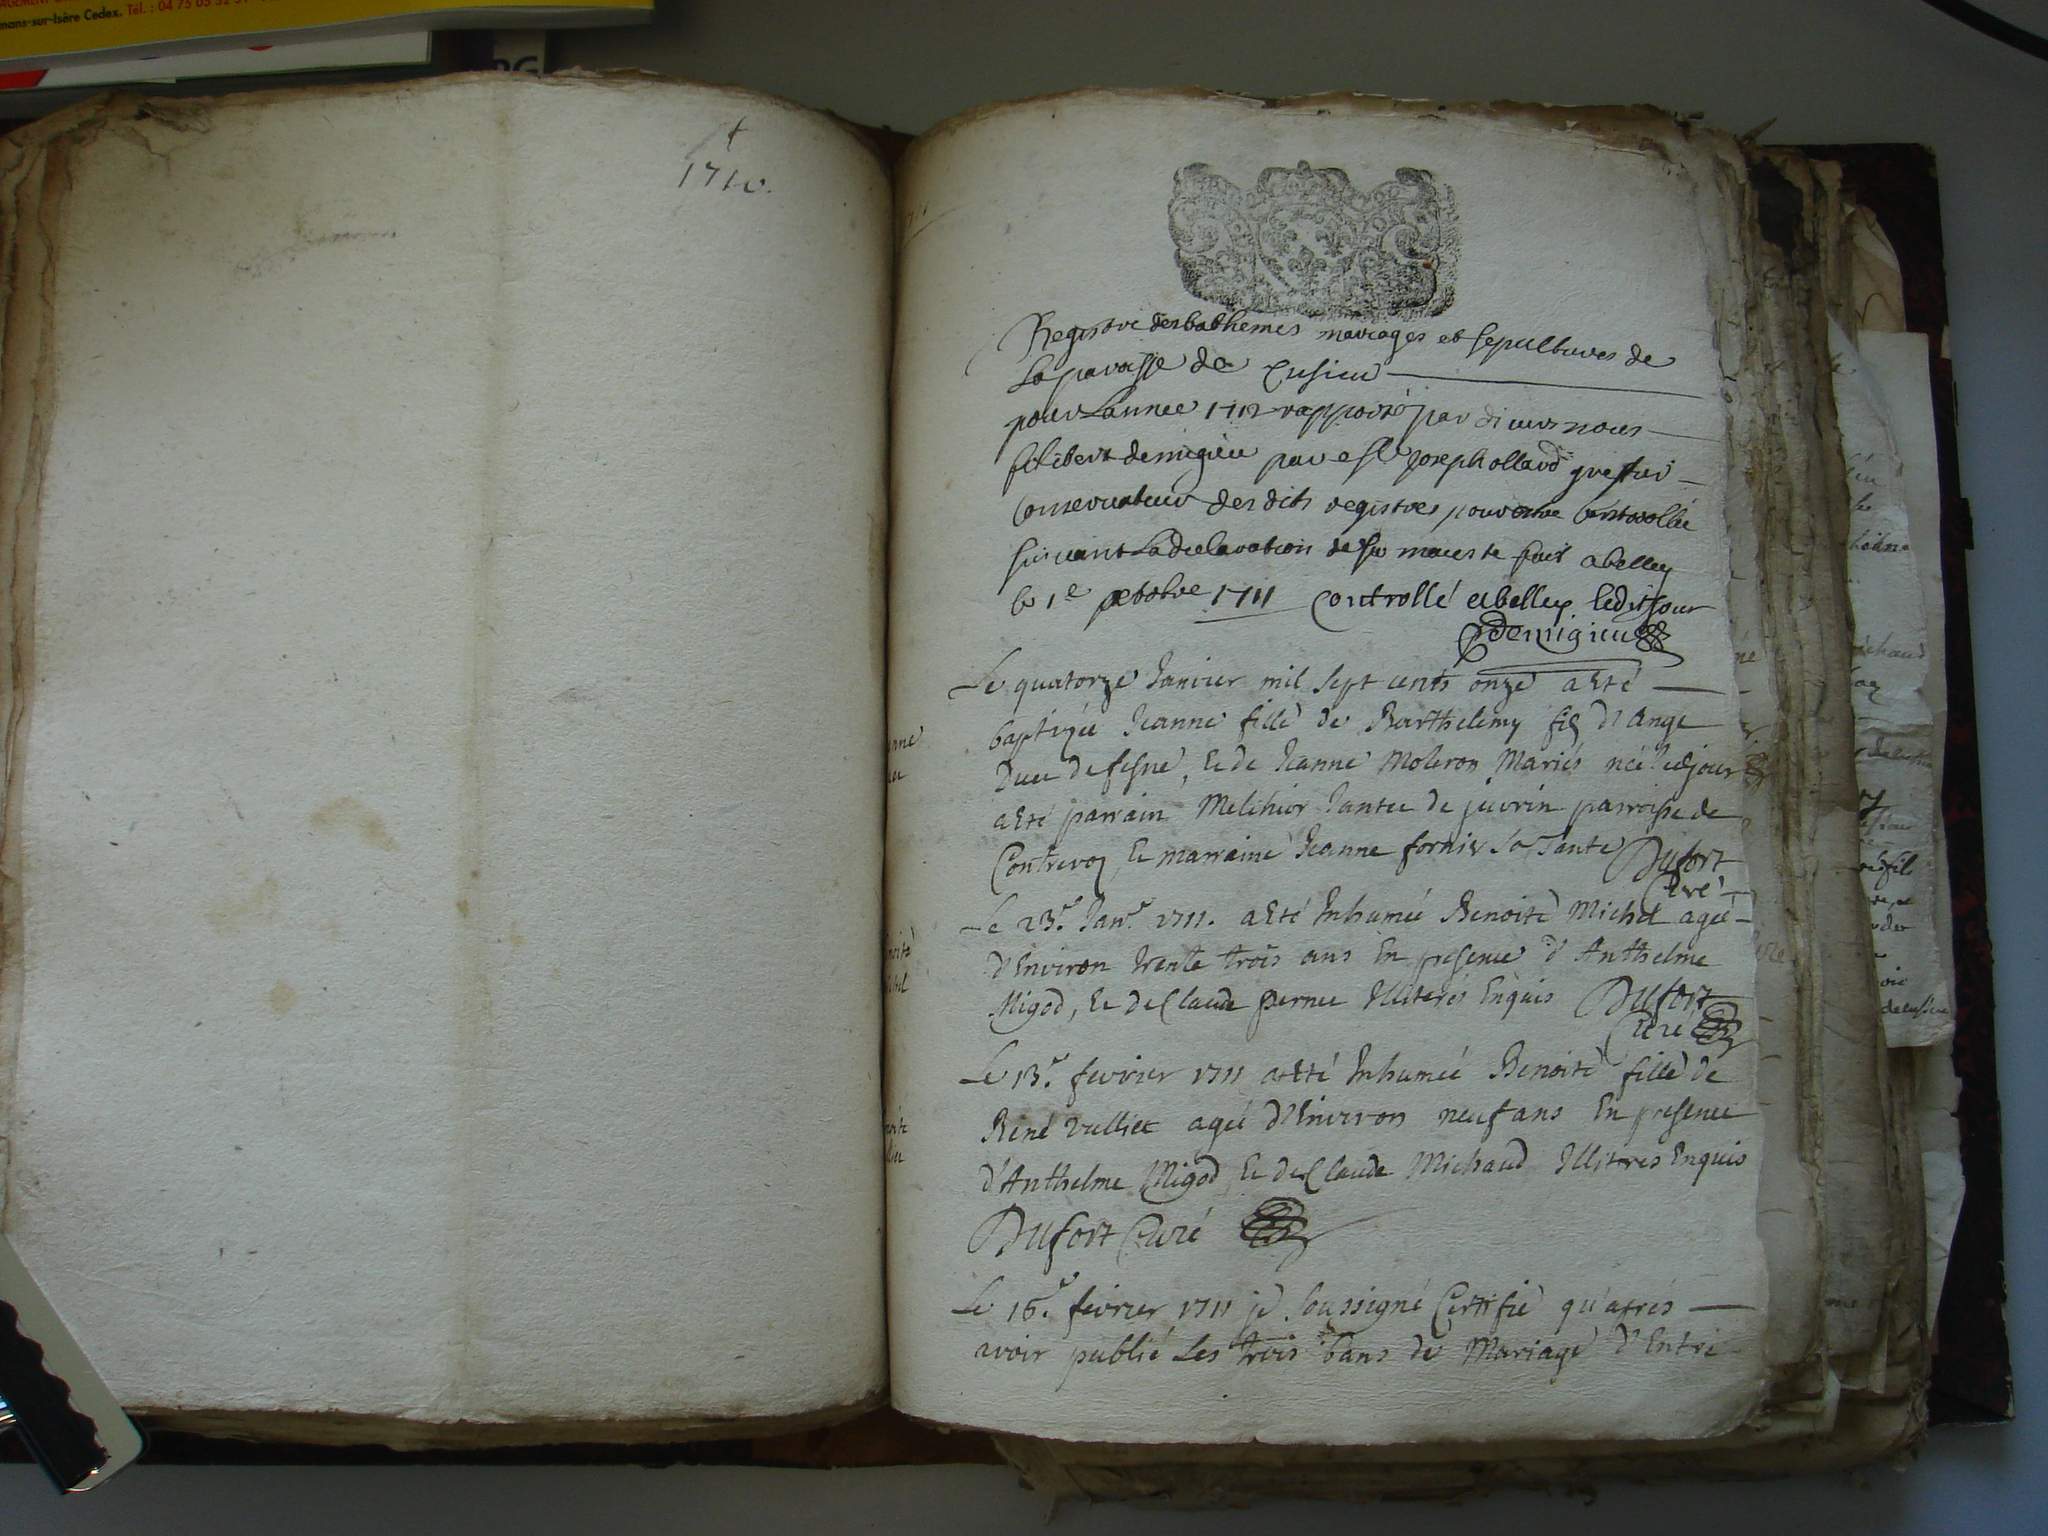 mans-sur-Isère Cedex. Tél. : 04 75 05 52 51
1710.
Registre des bathemes mariages et sepultures de
La paroisse de Cusieu
pour Lannee 1712 rapporté par divers nous
filibert demigieu par est Joseph ollard greffier
Conservateur des dits registres pour estre Controllée
suivant La declaration de sa maieste fait a belley
le 1e octobre 1711 Controllé a belley ledit jour
Demigieu
Le quatorze Janvier mil sept cents onze a Eté
baptizée Jeanne fille de Barthelemy fils d'Ange
Duc de fesne, Et de Jeanne Moleron Mariés née ledjour
a Eté parrain Melchior Jantee de juvrin parroisse de
Contrevoz, Et marraine Jeanne fornier sa Tante Dufort
Curé
Le 23e. Janr. 1711. a Eté Inhumée Benoite Michel agée
d'Environ trente trois ans En presence d'Anthelme
Migod, Et de Claude pernee Illiterés Enquis Dufort
Curé
Le 13e. fevrier 1711 a Eté Inhumée Benoite fille de
René vulliet agée d'Environ neuf ans En presence
d'Anthelme Migod Et de Claude Michaud Illiterés Enquis
Dufort Curé
Le 16e. fevrier 1711 je soussigné Certifie qu'aprés
avoir publié Les trois bans de Mariage d'Entre